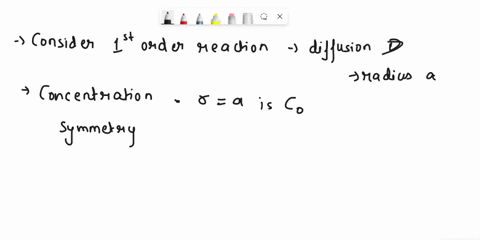 → Consider 1st order reaction → diffusion D
→ radius a
→ Concentration . r = a is C₀
Symmetry